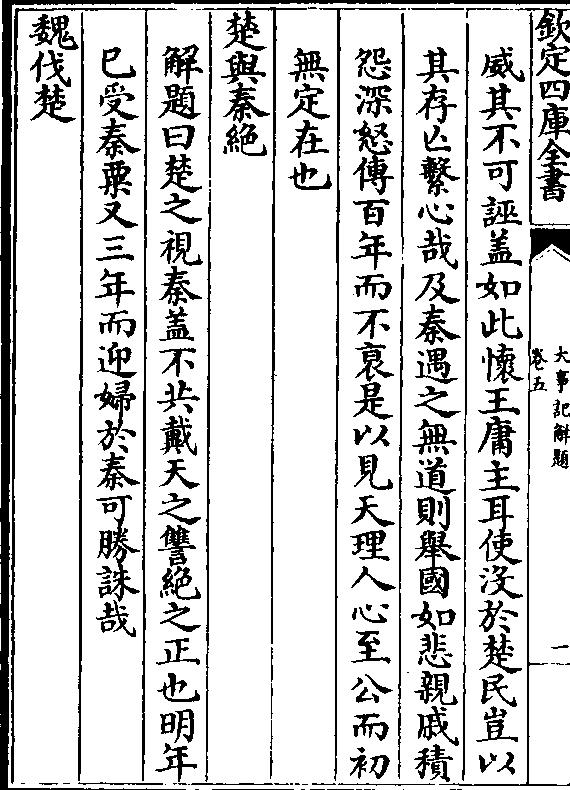 欽定四庫全書
大事記解題
卷五
一
威其不可誣盖如此懷王庸主耳使沒於楚民豈以
其存亡繫心哉及秦遇之無道則舉國如悲親戚積
怨深怒傳百年而不衰是以見天理人心至公而初
無定在也
楚與秦絶
解題曰楚之視秦盖不共戴天之讐絶之正也明年
已受秦粟又三年而迎婦於秦可勝誅哉
魏伐楚